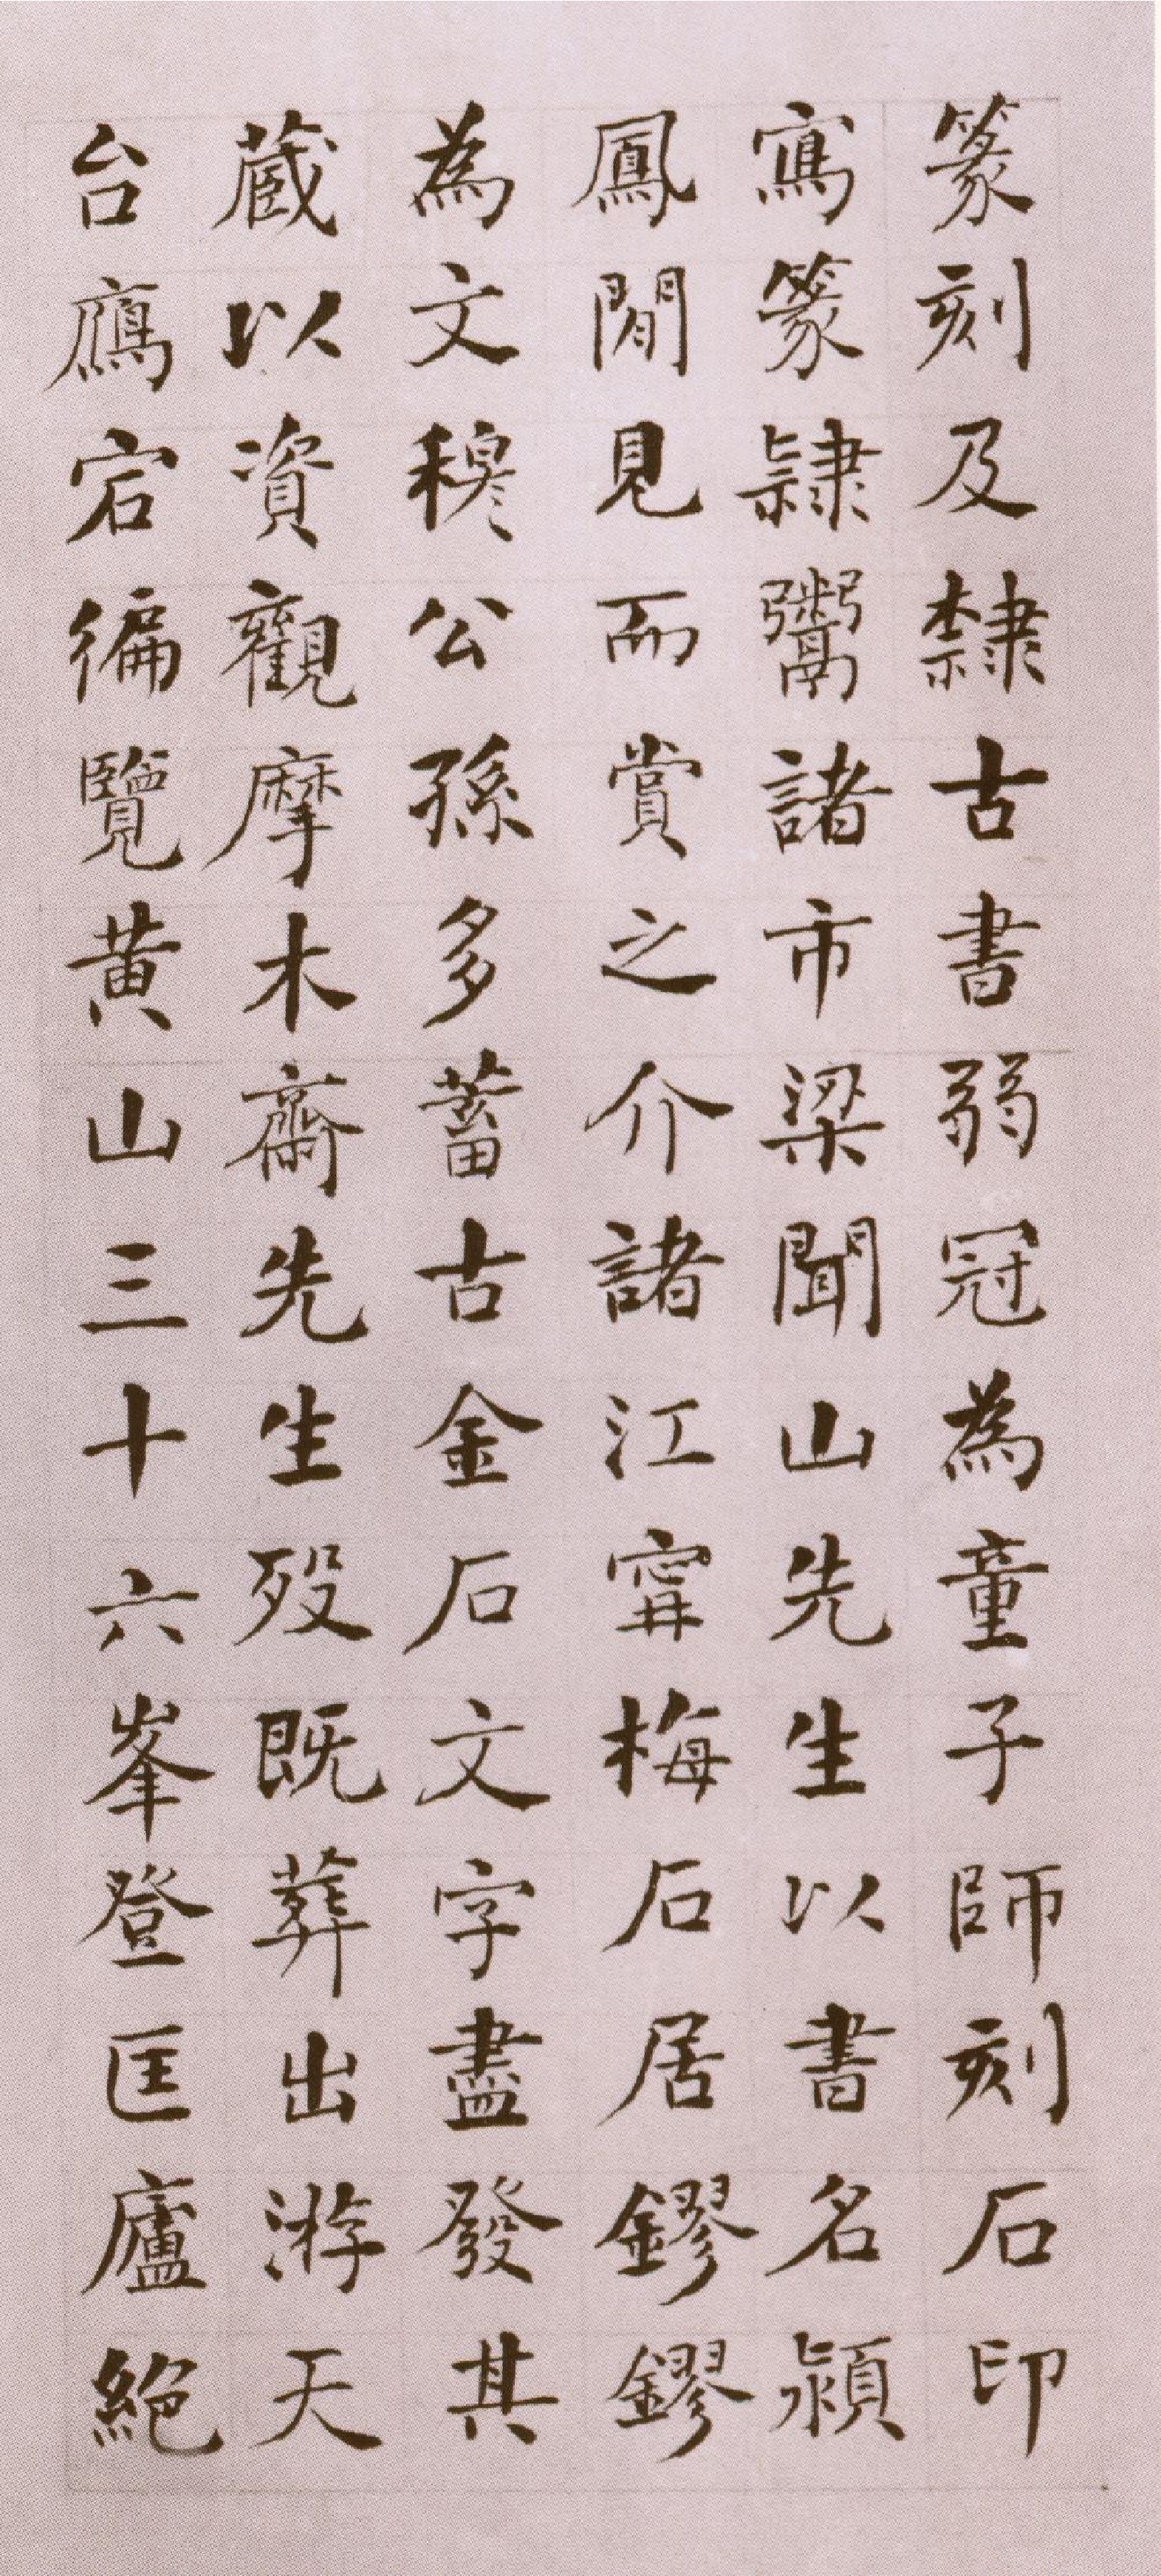 篆刻及隸古書弱冠為童子師刻石印
寫篆隸鬻諸市梁聞山先生以書名潁
鳳閒見而賞之介諸江甯梅石居鏐鏐
為文穆公孫多蓄古金石文字盡發其
藏以資觀摩木齋先生歿既葬出游天
台鴈宕徧覽黃山三十六峯登匡廬絕